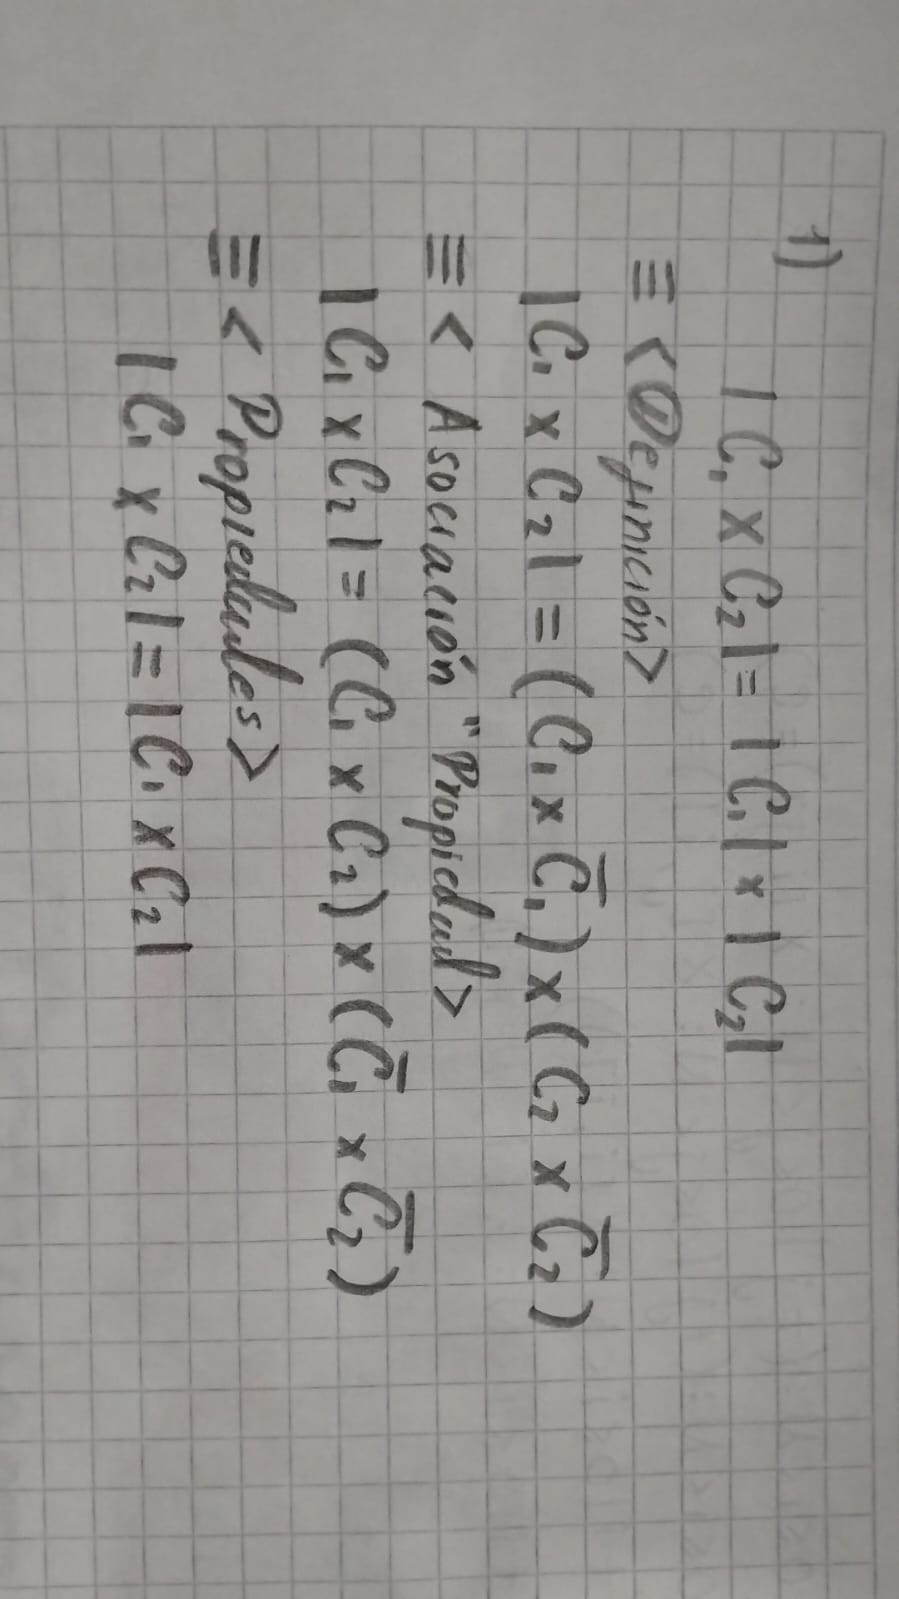 1) |C₁ × C₂| = |C₁| × |C₂|
≡ <Definición>
|C₁ × C₂| = (C₁ × C̅₁) × (C₂ × C̅₂)
≡ < Asociación "Propiedad>
|C₁ × C₂| = (C₁ × C₂) × (C̅₁ × C̅₂)
≡ < Propiedades>
|C₁ × C₂| = |C₁ × C₂|